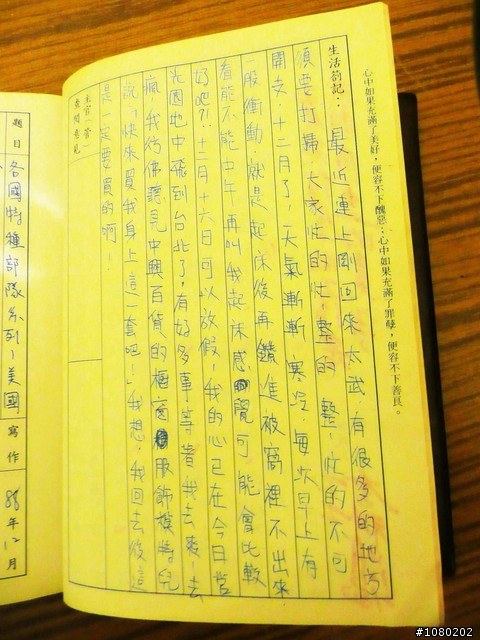 心中如果充滿了美好，便容不下醜惡；心中如果充滿了罪孽，便容不下善良。
生活箚記：最近連上剛回來太武，有很多的地方
須要打掃，大家忙的忙，整的整，忙的不可
開交，十二月了，天氣漸漸寒冷，每次早上有
一股衝動，就是起床後再鑽進破窩裡不出來，
看能不能中午再叫我起床感覺可能會比較
好吧?!十二月十六日可以放假，我的心已在今日莒
光園地中飛到台北了，有好多事等著我去做，去
瘋，我彷彿聽見中興百貨的櫥窗服飾模特兒
說「快來買我身上這一套吧！」我想，我回去後這
是一定要買的啊！
主官（管）
批閱意見
題目 各國特種部隊系列-美國 寫作 88年12月
#1080202